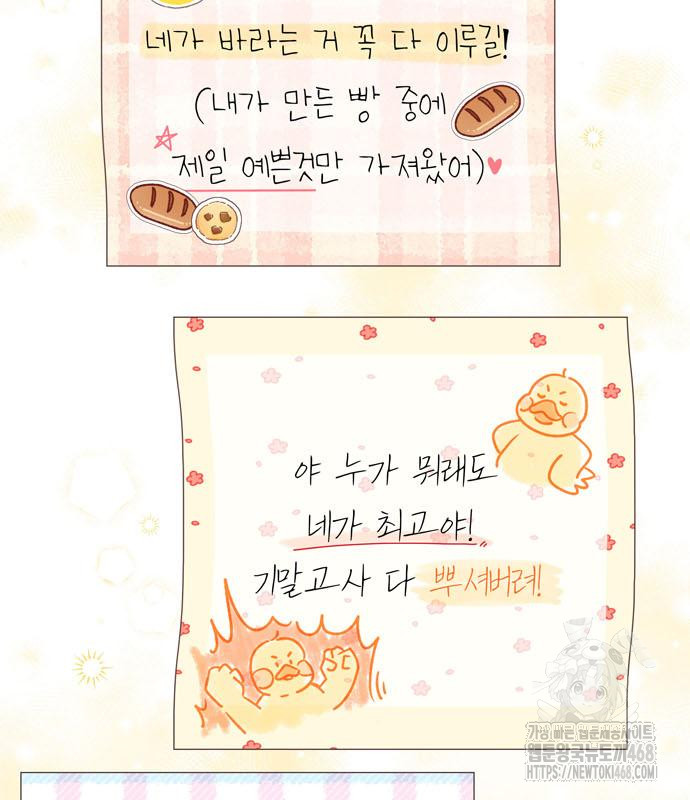 네가 바라는 거 꼭 다 이루길!
(내가 만든 빵 중에
제일 예쁜것만 가져왔어)
야 누가 뭐래도
네가 최고야!
기말고사 다 뿌셔버려!
가장 빠른 웹툰제공사이트
웹툰왕국뉴토끼468
HTTPS://NEWTOKI468.COM